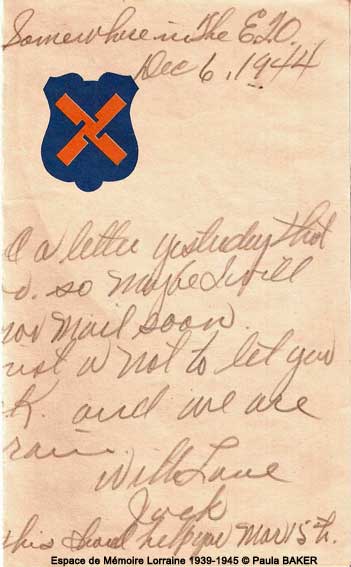 Somewhere in The E.T.O.
Dec 6, 1944
a letter yesterday that
so maybe I will
mail soon.
a not to let you
K. and we are
With Love
Jack
this
Espace de Mémoire Lorraine 1939-1945 © Paula BAKER